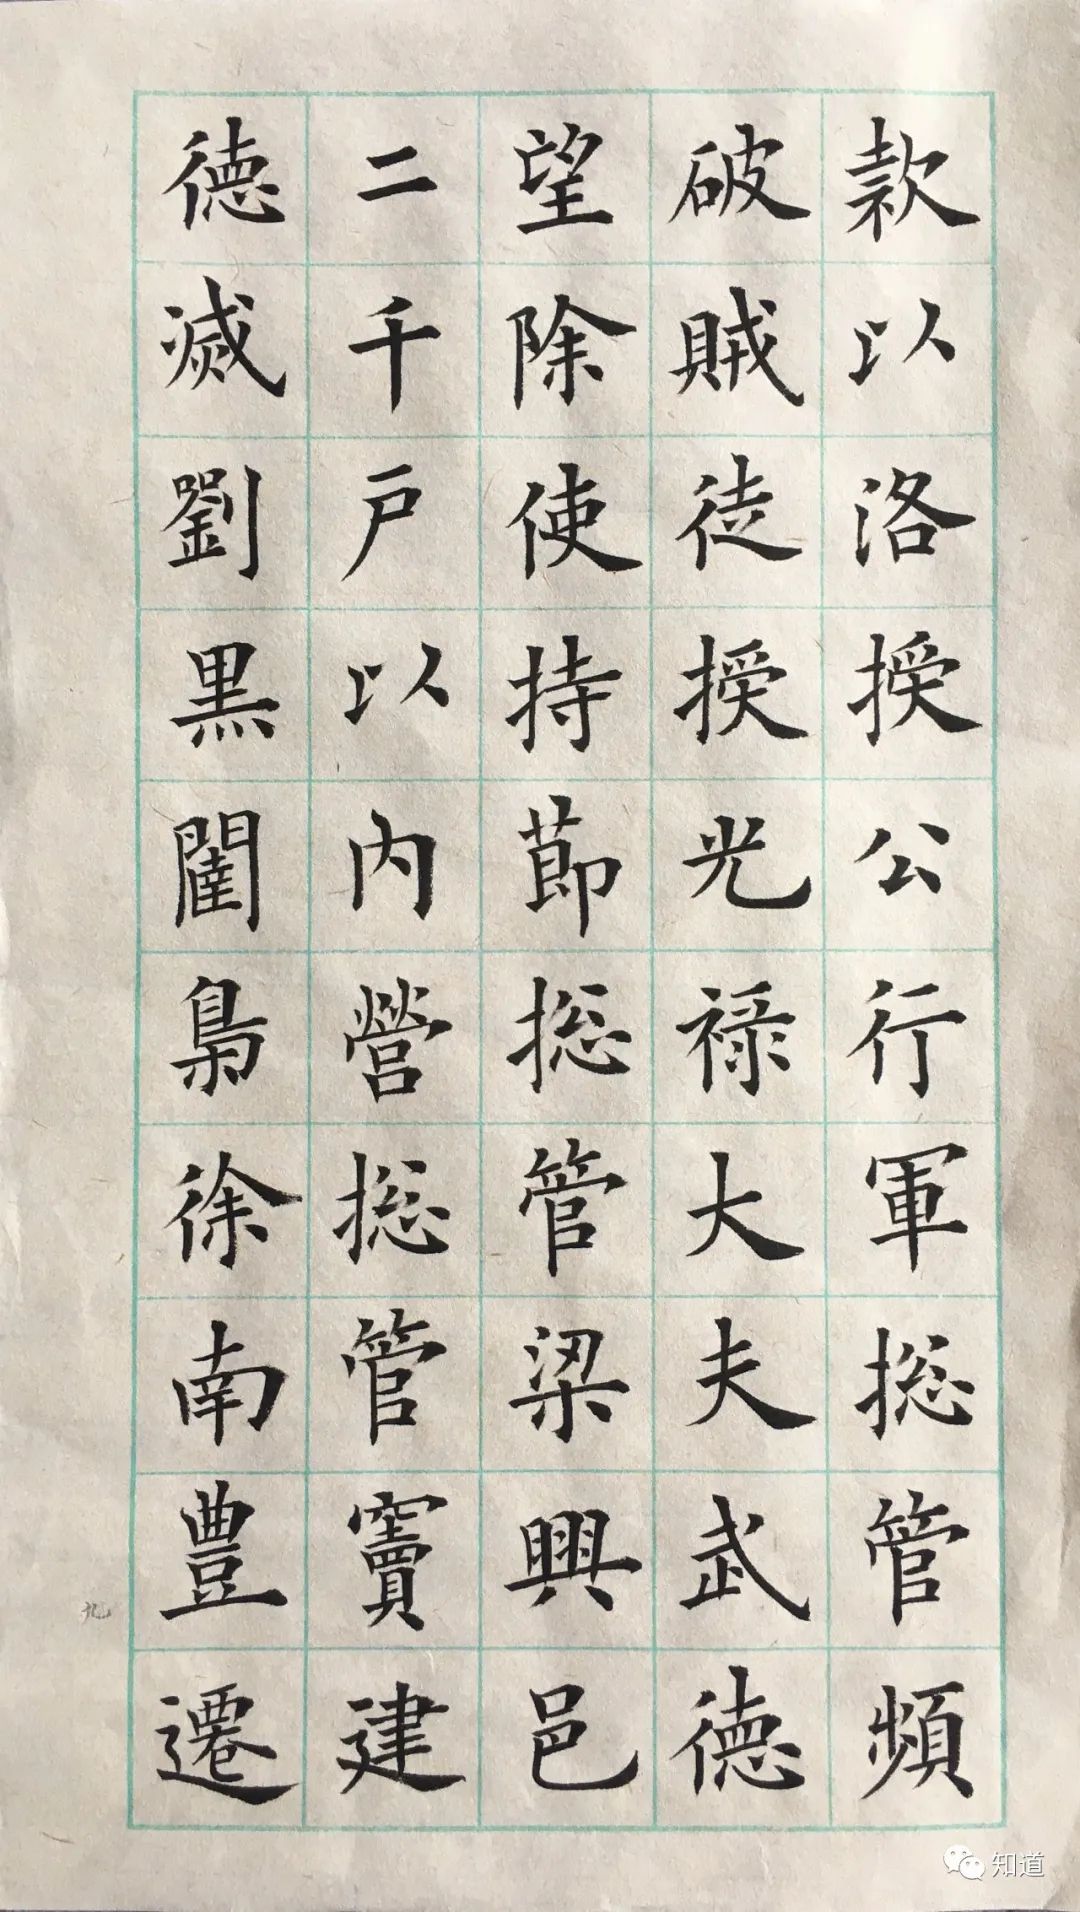 款以洛授公行軍揔管頻
破賊徒授光禄大夫武德
望除使持節揔管梁興邑
二千戶以內營揔管竇建
德滅劉黑闥梟徐南豊遷
九
知道